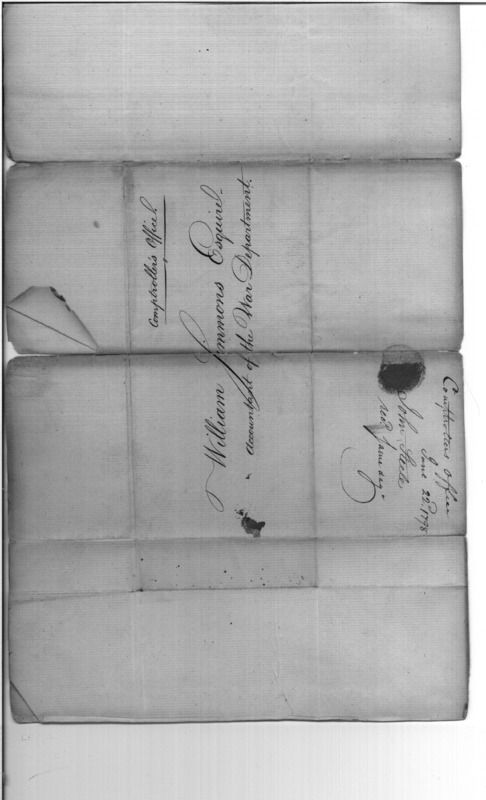 Comptrollers Office,
William Simmons Esquire
Accountant of the War Department.
Comptrollers Office
June 22d. 1798
John Steele
recd. same day